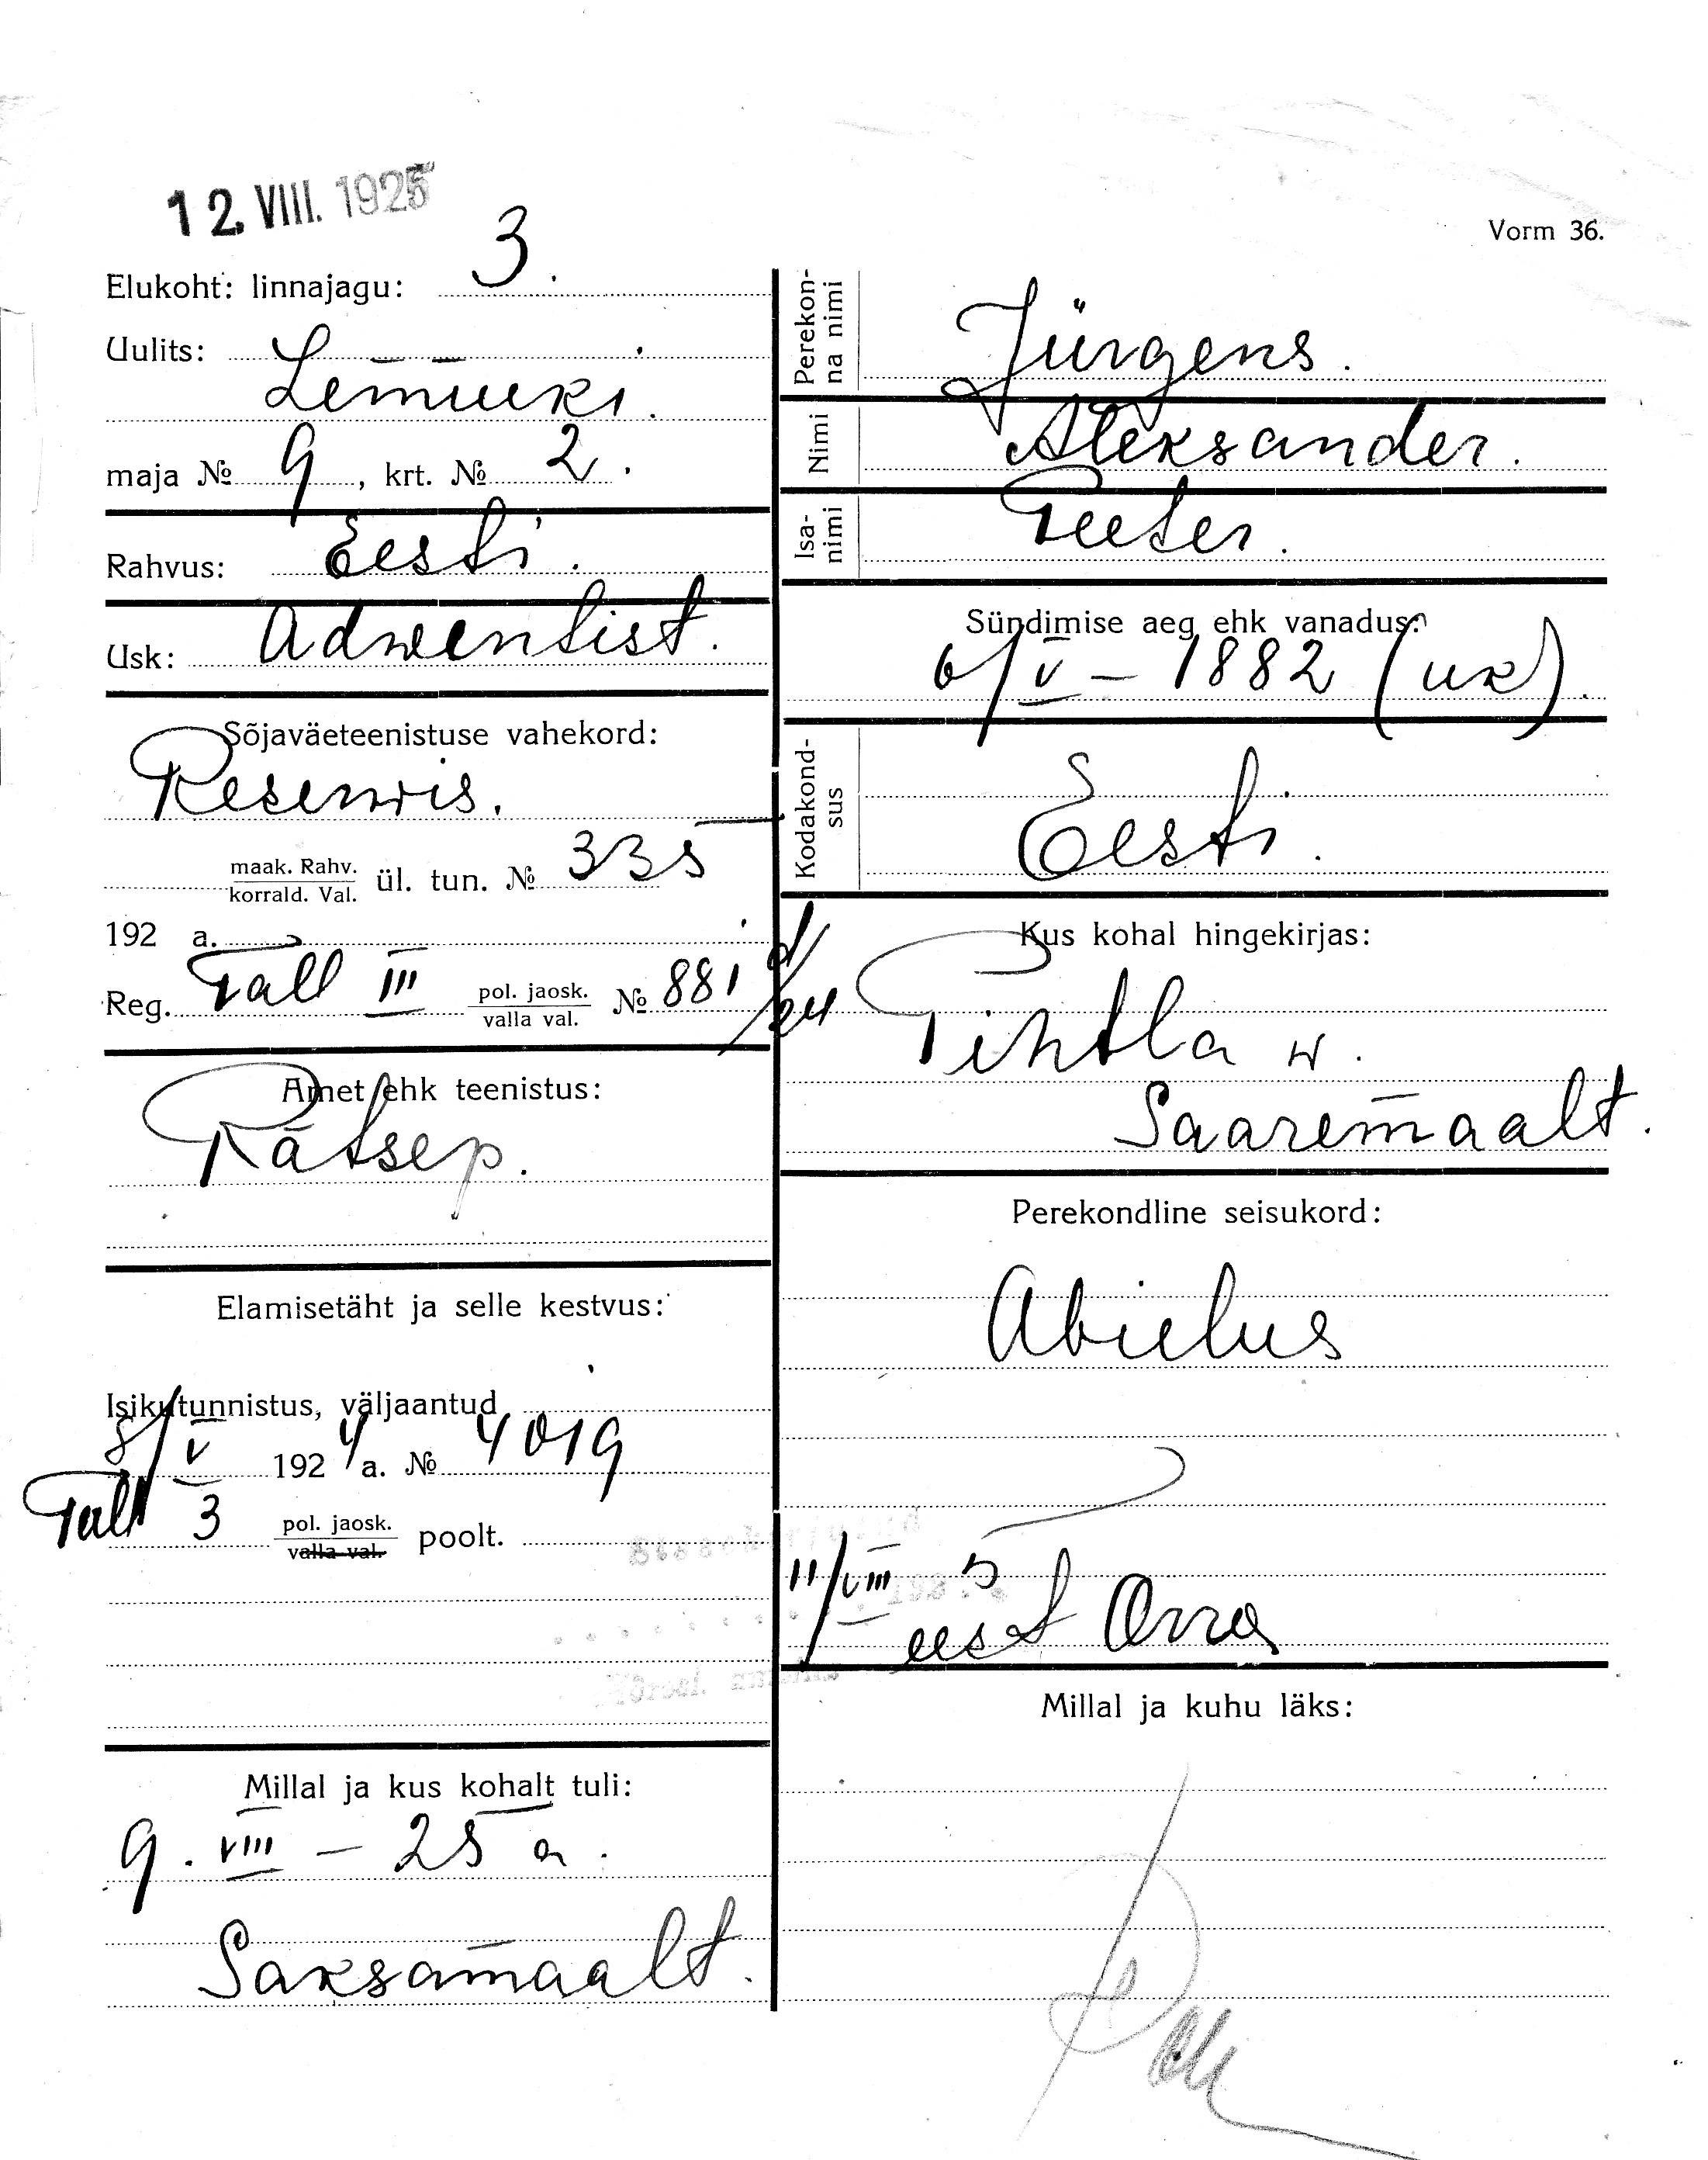 12. VIII. 1925
Vorm 36.
Elukoht: linnajagu: 3.
Uulits:
Lemuuki.
maja № 9, krt. № 2.
Rahvus: Eesti.
Usk: Adwentist.
Sõjaväeteenistuse vahekord:
Reserwis.
maak. Rahv.
korrald. Val. ül. tun. № 335
192 a.
Reg. Tall III pol. jaosk. № 881
valla val.
Amet ehk teenistus:
Rätsep.
Elamisetäht ja selle kestvus:
Isikutunnistus, väljaantud
8/V 1924 a. № 4019
Tall 3 pol. jaosk. poolt.
valla val.
Millal ja kus kohalt tuli:
9. VIII – 25 a.
Saksamaalt.
Perekon-
na nimi
Jürgens.
Nimi Aleksander.
Isa-
nimi
Peeter.
Sündimise aeg ehk vanadus:
6/V – 1882 (uk).
Kodakond-
sus
Eesti.
Kus kohal hingekirjas:
Pihtla w.
Saaremaalt.
Perekondline seisukord:
Abielus
11/VIII 5
eest
Millal ja kuhu läks: